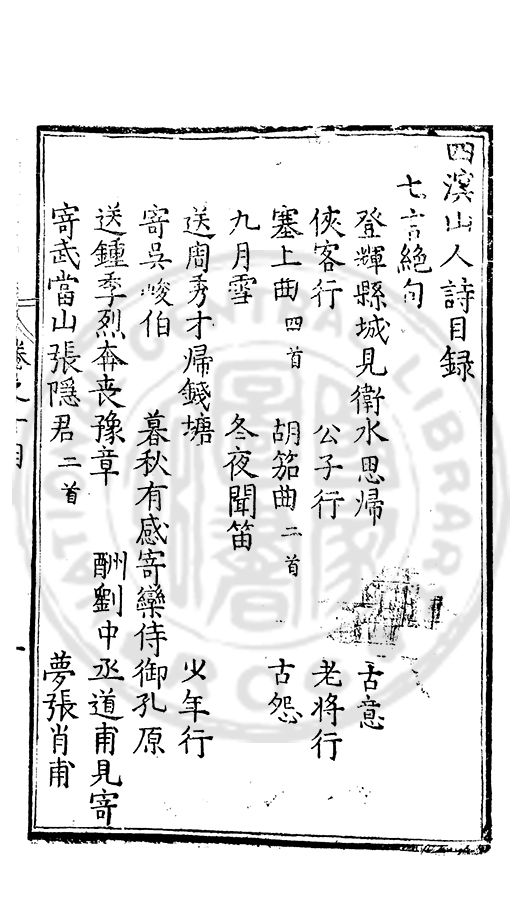 四溟山人詩目録
七言絶句
登輝縣城見衛水思歸　古意
俠客行　公子行　老将行
塞上曲四首　胡笳曲二首　古怨
九月雪　冬夜聞笛
送周秀才歸錢塘　少年行
寄吳峻伯　暮秋有感寄欒侍御孔原
送鍾季烈奔喪豫章　酬劉中丞道甫見寄
寄武當山張隠君二首　夢張肖甫